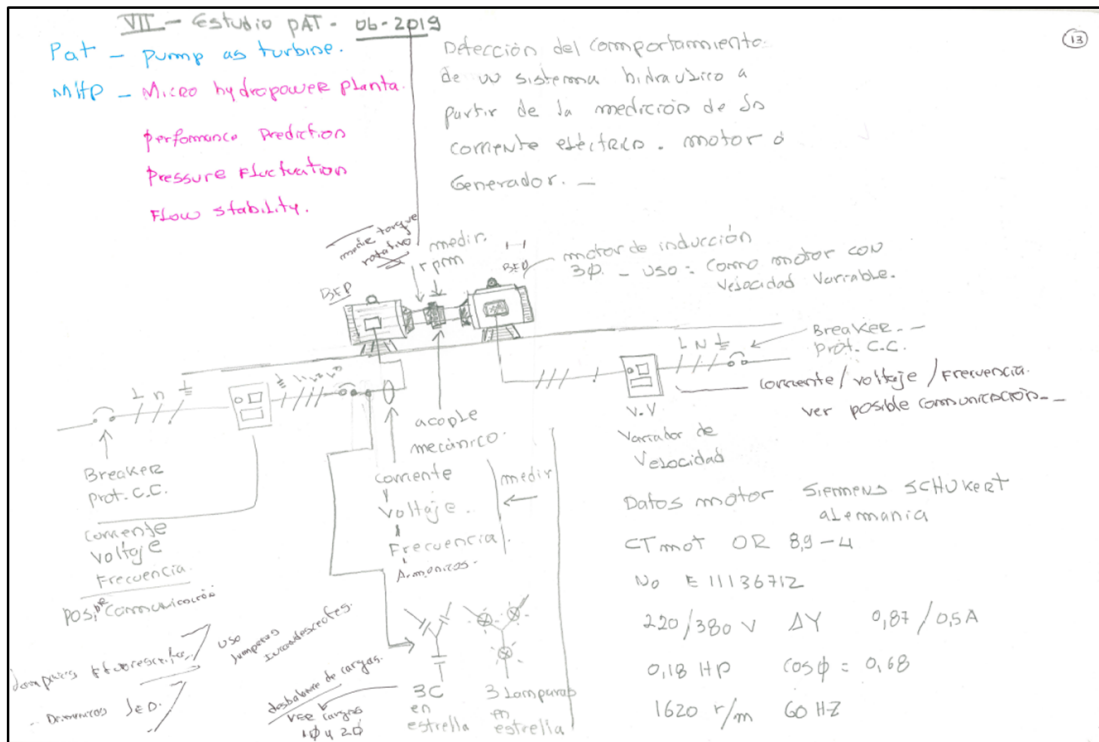 VII - Estudio PAT - 06-2019
13
Pat - pump as turbine.
MHP - Micro hydropower planta.
performance Prediction
Pressure Fluctuation
Flow stability.
Detección del comportamiento
de un sistema hidraulico a
partir de la medición de la
corriente eléctrica. motor o
Generador. -
medir torque
rotativo
medir.
rpm
BFP
BFP
motor de inducción
3Φ - uso = como motor con
Velocidad Variable.
Breaker. -
Prot. C.C.
L N
L n
corriente / voltaje / Frecuencia.
ver posible comunicación. -
V.V
Variador de
Velocidad
acople
mecánico.
Breaker
Prot. C.C.
corriente
Voltaje
Frecuencia.
corriente
Voltaje.
Frecuencia
Armonicos.
medir
Datos motor Siemens SCHUKERT
alemania
CTmot OR 8,9-4
No E 11136712
220/380 V ΔY 0,87 / 0,5A
0,18 HP cosϕ = 0,68
1620 r/m 60 HZ
uso
lamparas
incandescentes.
desbalance de cargas.
ver cargas
1Φ y 2Φ
3C
en
estrella
3 Lamparas
en
estrella